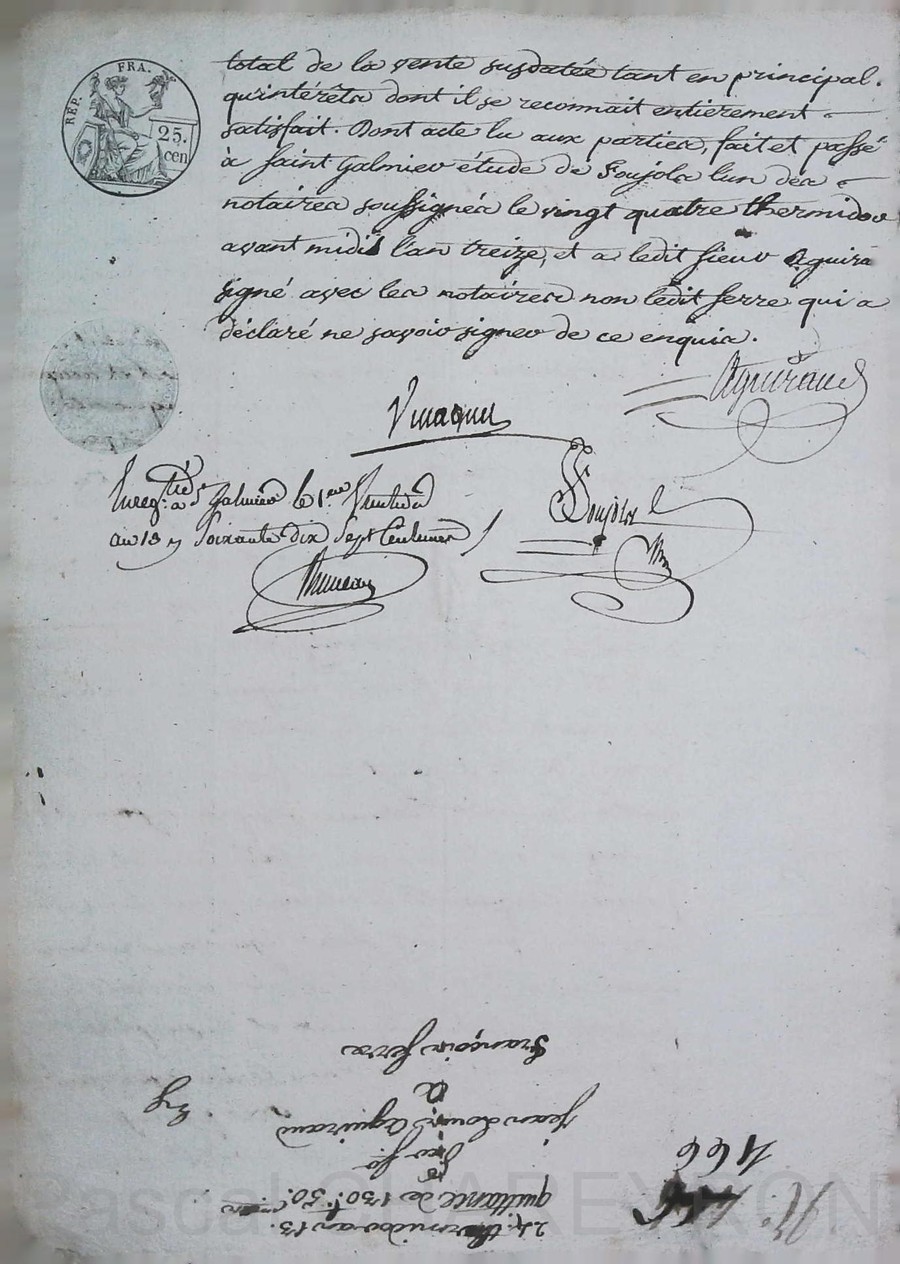 REP. FRA.
25. cen
total de la vente susdatée tant en principal.
qu'intérêts dont il se reconnait entièrement
satisfait. Dont acte lu aux parties, fait et passé
à Saint Galmier étude de Poujols l'un des
notaires soussignés le vingt quatre thermidor
avant midi l'an treize, et a ledit sieur Aguira
signé avec les notaires non ledit ferre qui a
déclaré ne savoir signer de ce enquis.
Aguiraud
Enreg.
à St Galmier le 1er
an 13 Soixante dix Sept Centimes
24. thermidor an 13.
quittance de 130.f 50.c
jean Louis Aguiraud
a
françois ferre
N.o
466
Pascal CHAREYRON